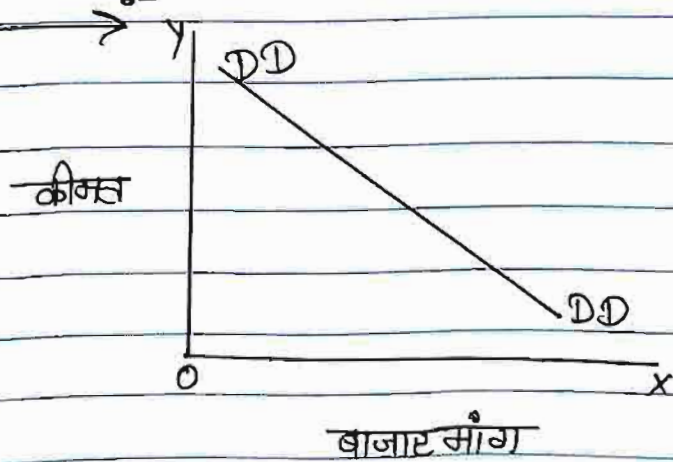 Y
DD
कीमत
DD
O
X
बाजार मांग